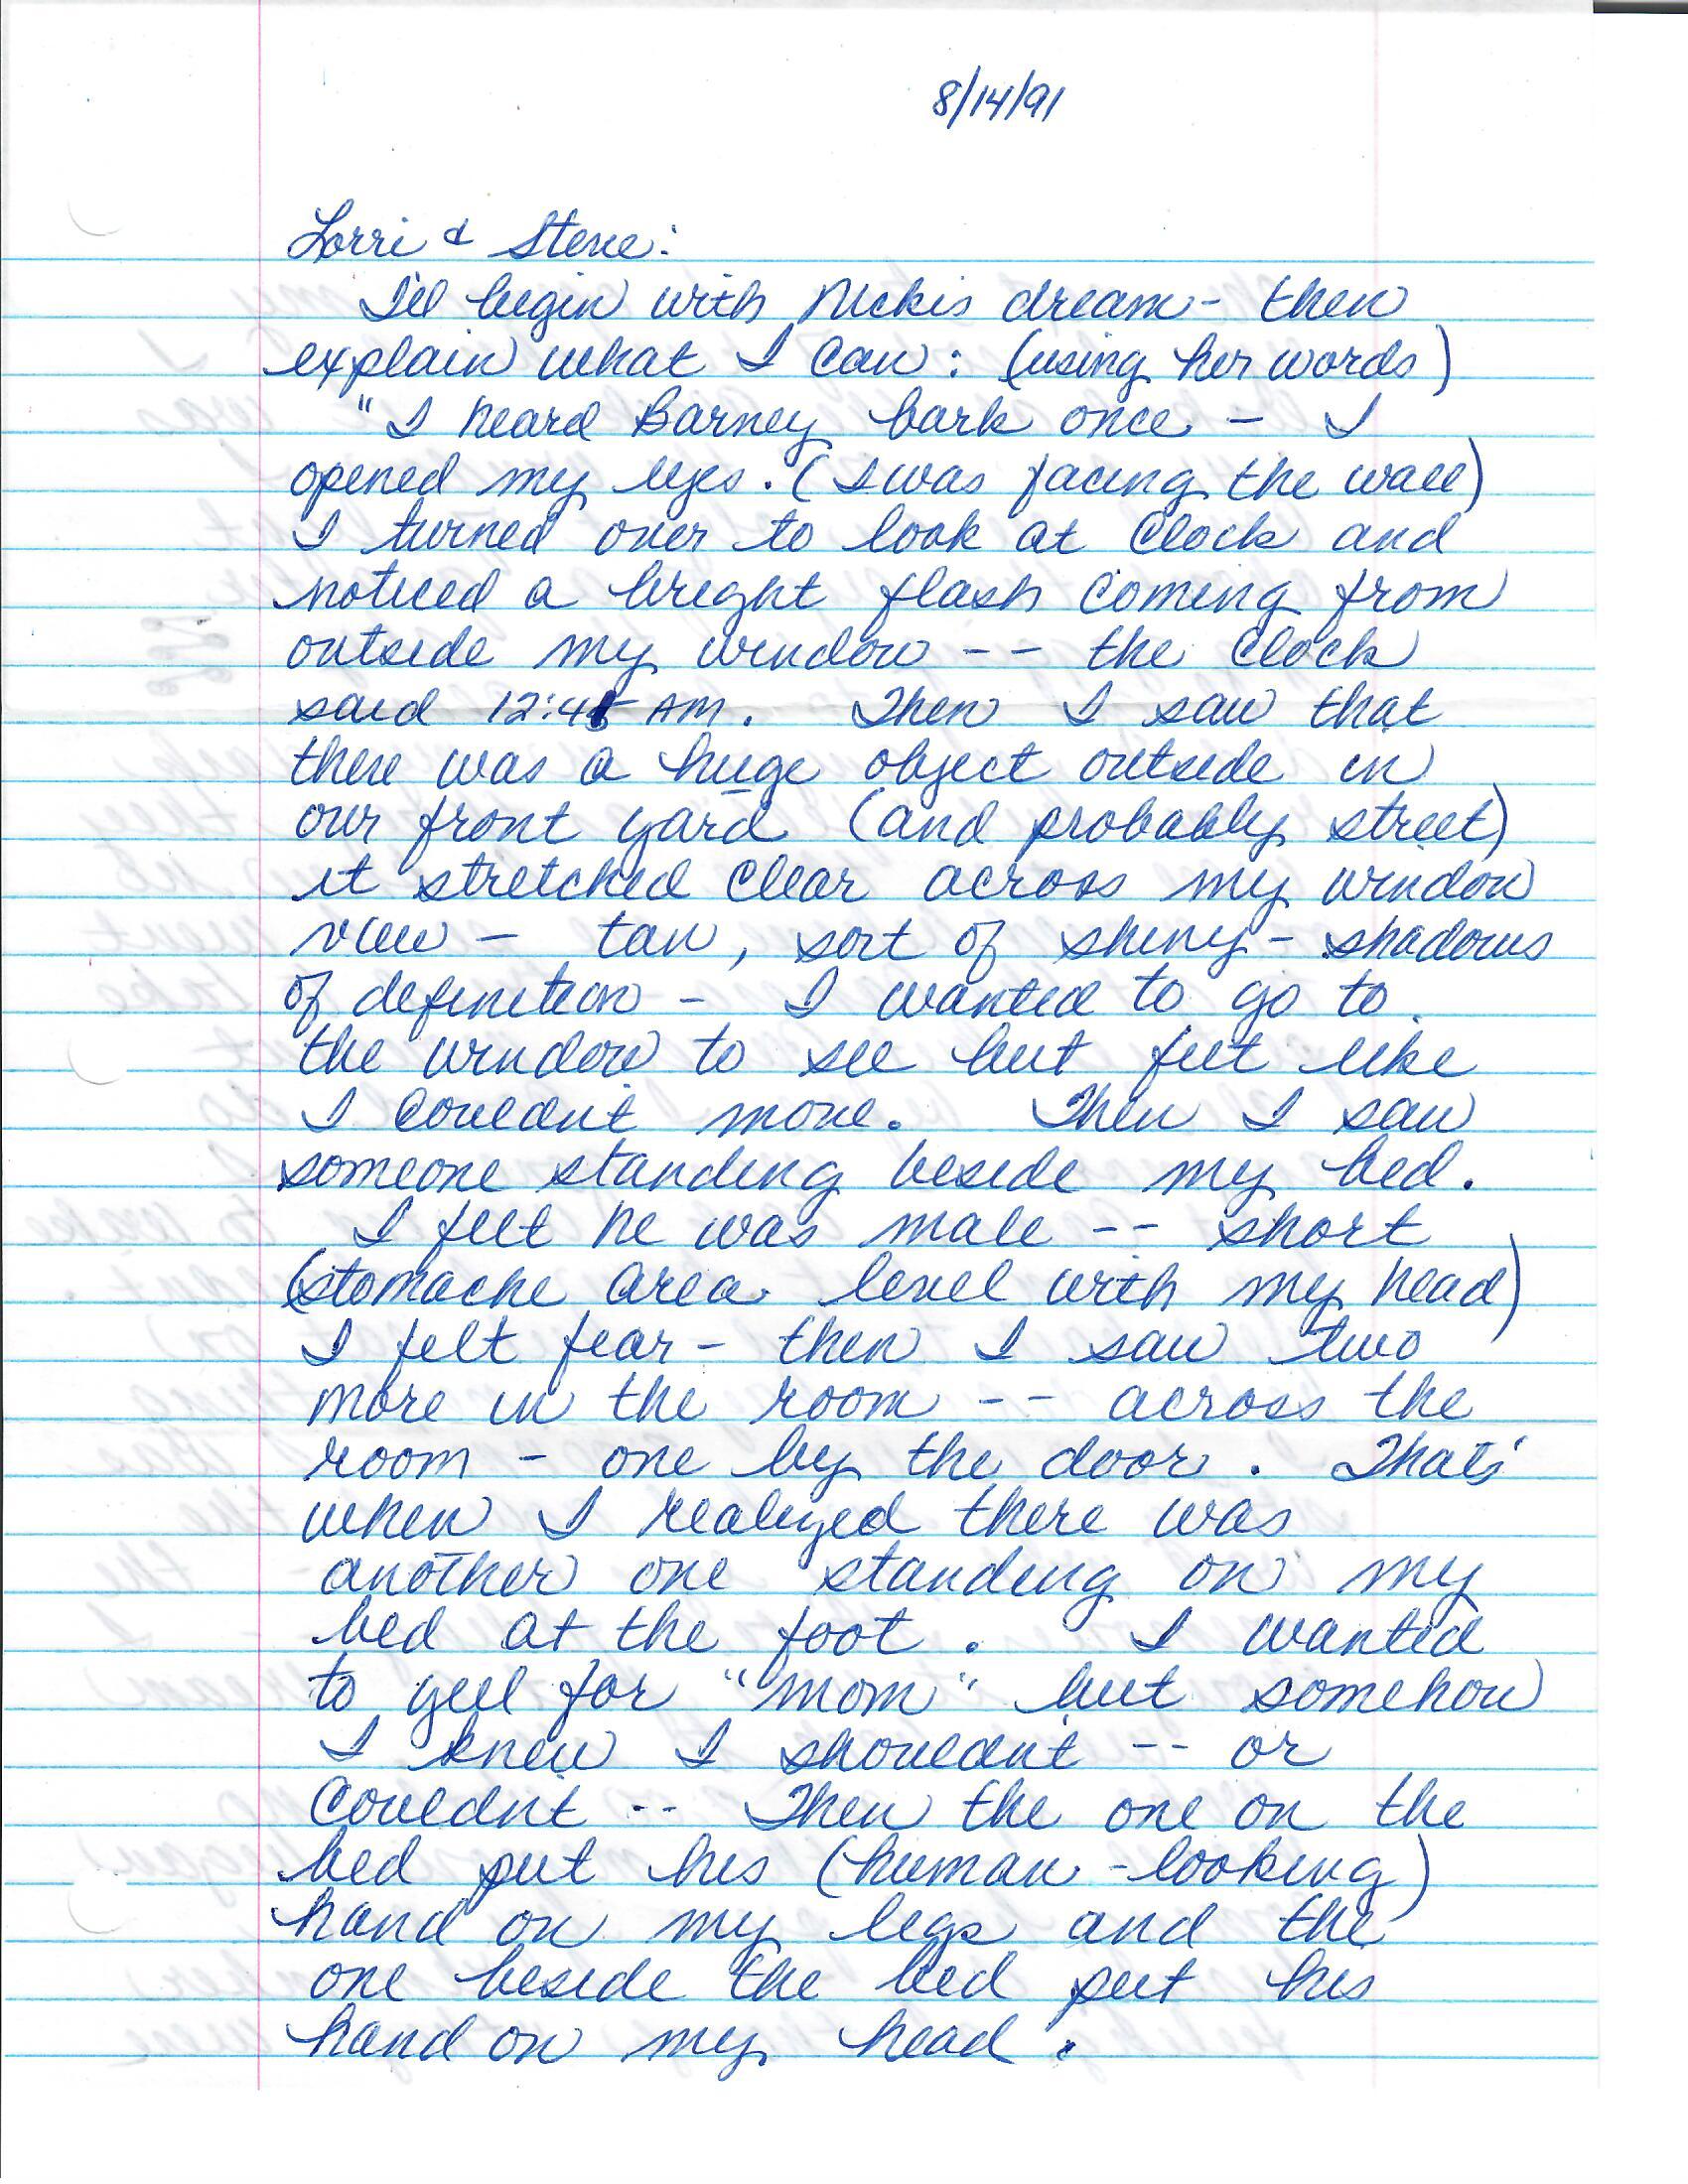 8/14/91
Lorri & Steve:
I'll begin with Nickis dream - then
explain what I can: (using her words)
"I heard Barney bark once - I
opened my eyes. (I was facing the wall)
I turned over to look at clock and
noticed a bright flash coming from
outside my window -- the clock
said 12:45 AM. Then I saw that
there was a huge object outside in
our front yard (and probably street)
it stretched clear across my window
view - tan, sort of shiny - shadows
of definition - I wanted to go to
the window to see but felt like
I couldn't move. Then I saw
someone standing beside my bed.
I felt he was male -- short
(stomache area level with my head)
I felt fear - then I saw two
more in the room -- across the
room - one by the door. That's
when I realized there was
another one standing on my
bed at the foot. I wanted
to yell for "mom" but somehow
I knew I shouldn't -- or
couldn't -- Then the one on the
bed put his (human-looking)
hand on my legs and the
one beside the bed put his
hand on my head.